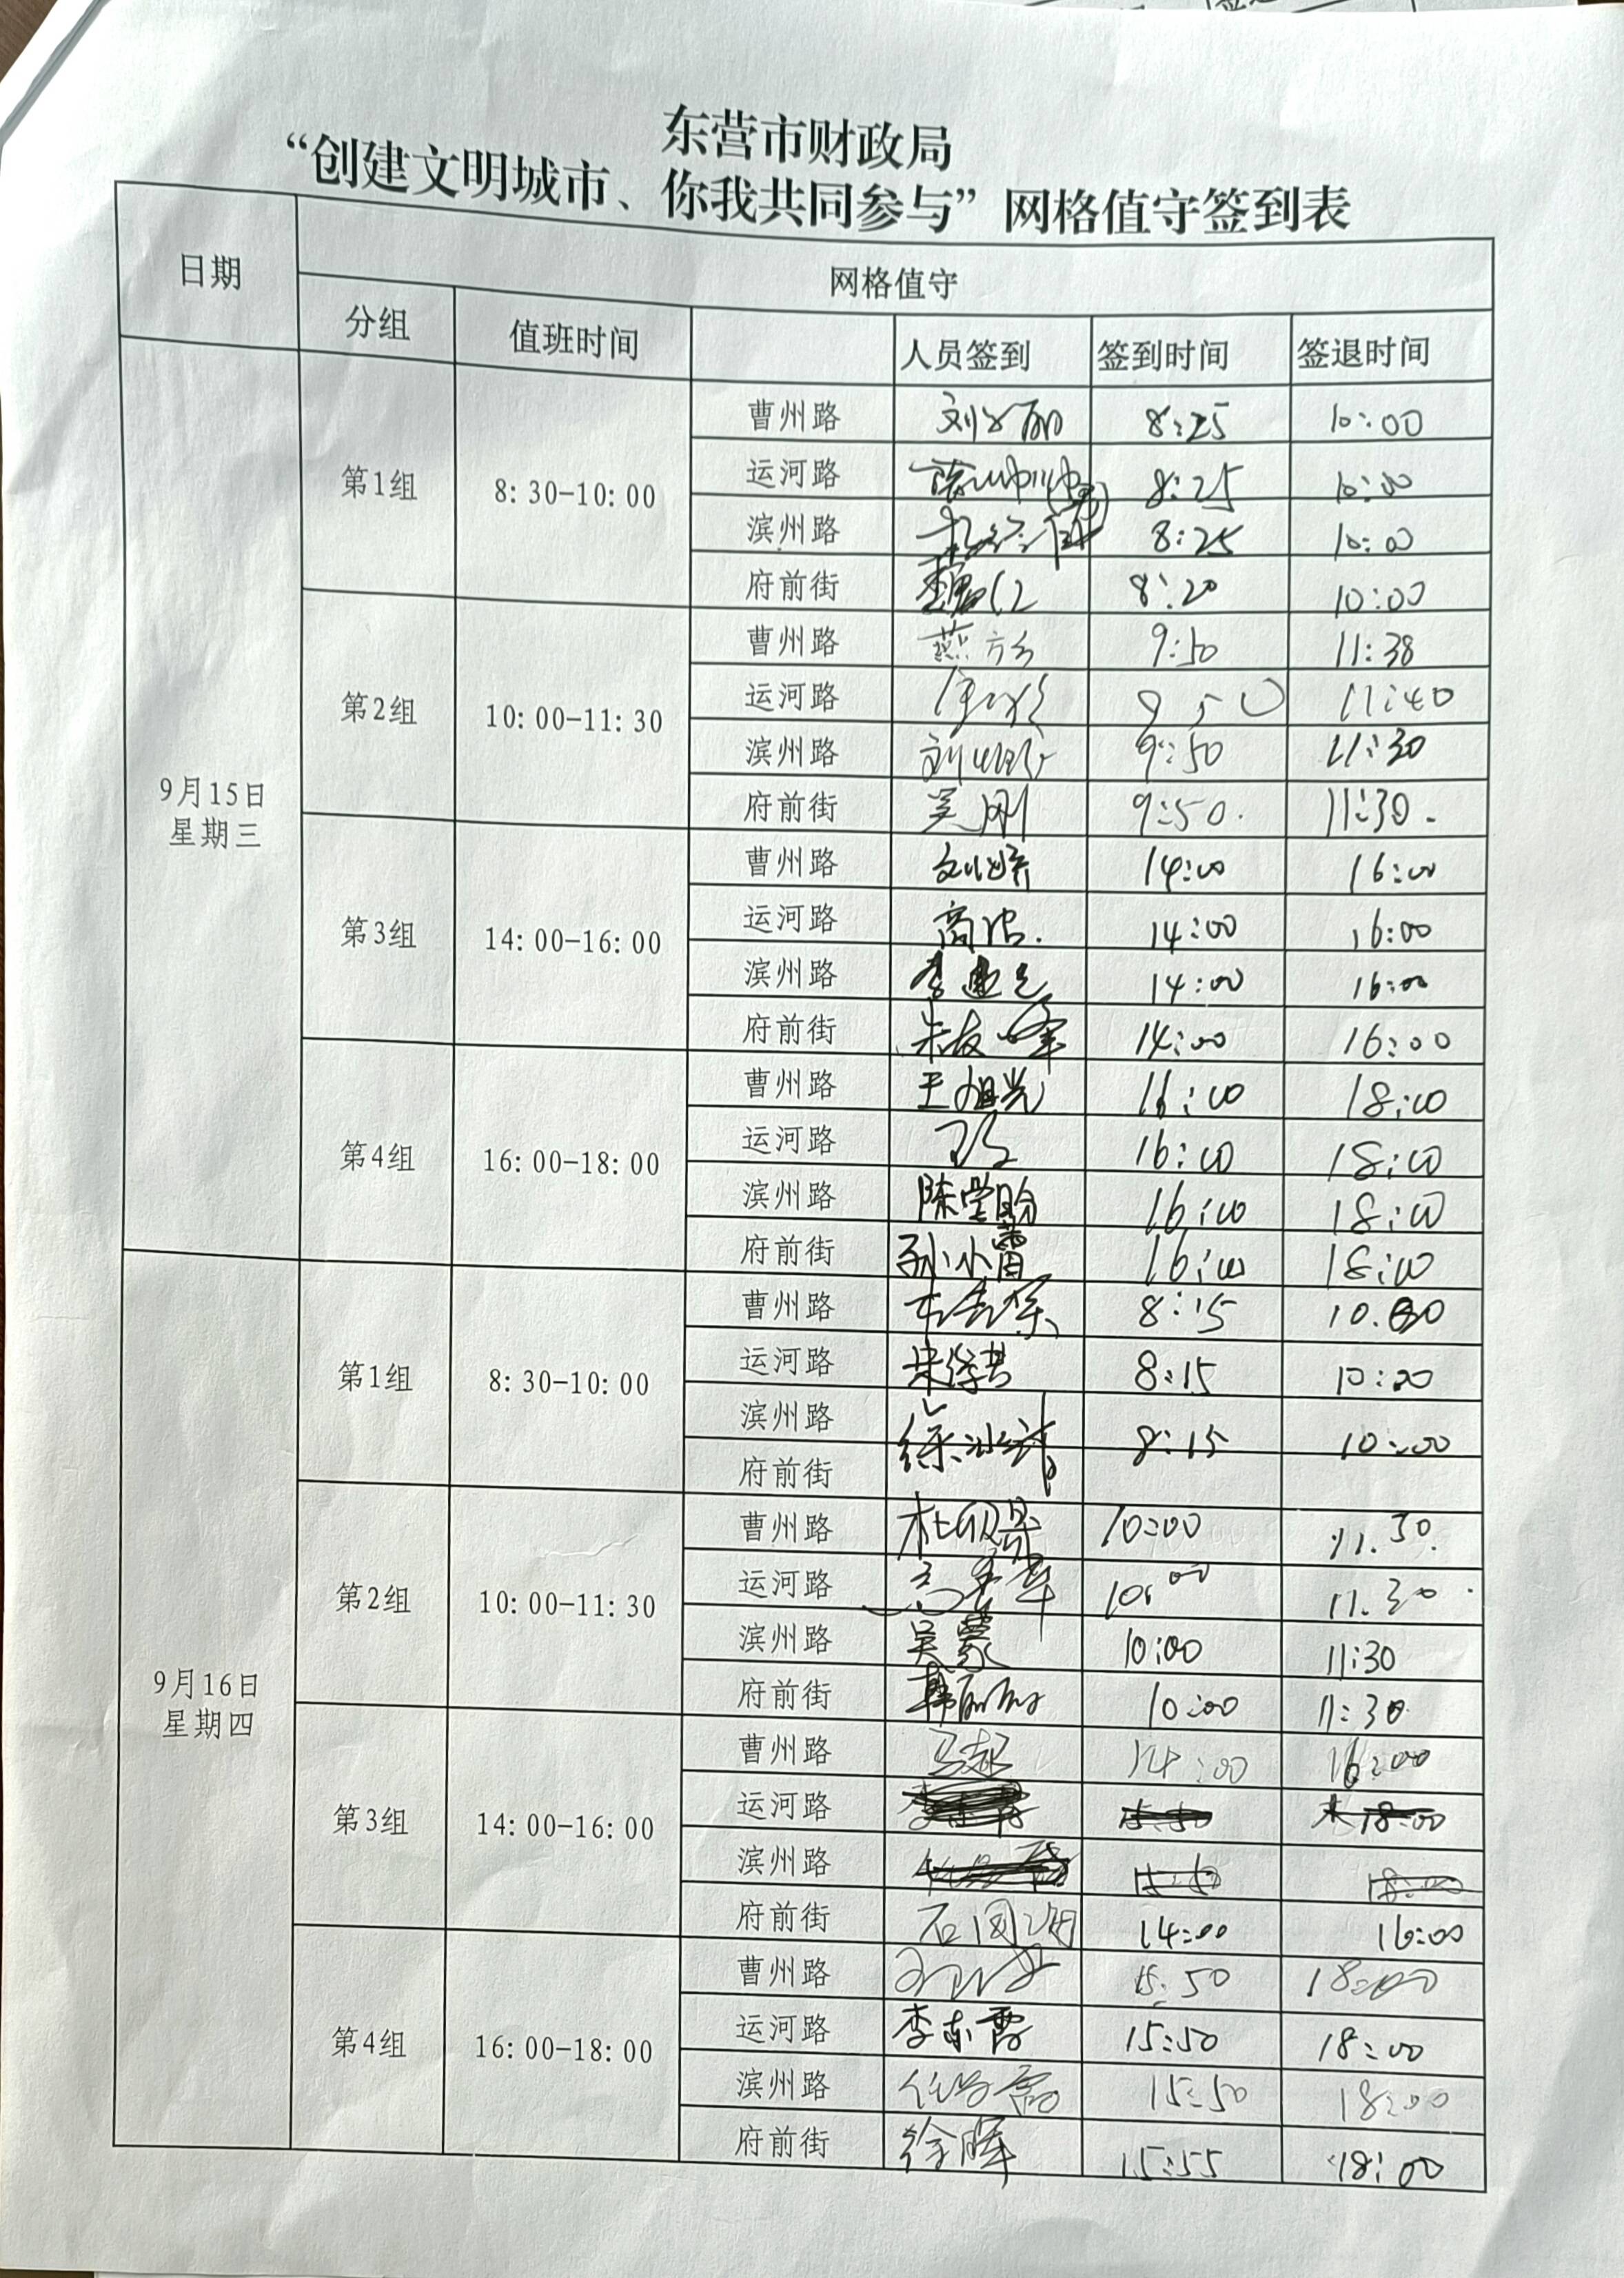 东营市财政局
“创建文明城市、你我共同参与”网格值守签到表
日期
网格值守
分组 值班时间 人员签到 签到时间 签退时间
9月15日
星期三
第1组 8:30-10:00
曹州路 8:25 10:00
运河路 8:25 10:00
滨州路 8:25 10:00
府前街 8:20 10:00
第2组 10:00-11:30
曹州路 9:50 11:38
运河路 9 50 11:40
滨州路 9:50 11:30
府前街 吴刚 9:50. 11:30.
第3组 14:00-16:00
曹州路 14:00 16:00
运河路 14:00 16:00
滨州路 14:00 16:00
府前街 朱友峰 14:00 16:00
第4组 16:00-18:00
曹州路 王旭光 16:00 18:00
运河路 16:00 18:00
滨州路 16:00 18:00
府前街 孙小蕾 16:00 18:00
9月16日
星期四
第1组 8:30-10:00
曹州路 8:15
运河路 8:15 10:00
滨州路 8:15 10:00
府前街
第2组 10:00-11:30
曹州路 10:00 11.30.
运河路 10:00 11.30
滨州路 吴蒙 10:00 11:30
府前街 10:00 11:30
第3组 14:00-16:00
曹州路 马超 14:00 16:00
运河路 15:50 18:00
滨州路 15:50 18:00
府前街 14:00 16:00
第4组 16:00-18:00
曹州路 15:50 18:00
运河路 李东霞 15:50 18:00
滨州路 15:50 18:00
府前街 徐晖 15:55 18:00